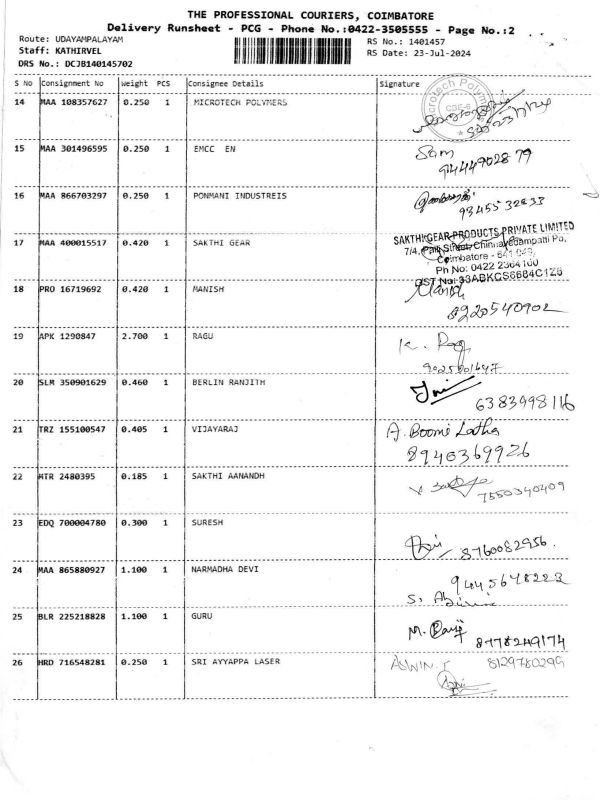 THE PROFESSIONAL COURIERS, COIMBATORE
Delivery Runsheet - PCG - Phone No.:0422-3505555 - Page No.:2
Route: UDAYAMPALAYAM RS No.: 1401457
Staff: KATHIRVEL RS Date: 23-Jul-2024
DRS No.: DCJB140145702
S No Consignment No Weight PCS Consignee Details Signature
14 MAA 108357627 0.250 1 MICROTECH POLYMERS
15 MAA 301496595 0.250 1 EMCC EN Sam
9444902879
16 MAA 866703297 0.250 1 PONMANI INDUSTREIS
9345532833
17 MAA 400015517 0.420 1 SAKTHI GEAR SAKTHI GEAR PRODUCTS PRIVATE LIMITED
7/4, Park Street, Chinnavedampatti Po,
Coimbatore - 641 049,
Ph No: 0422 2364100
18 PRO 16719692 0.420 1 MANISH Manish
8220540902
19 APK 1290847 2.700 1 RAGU K. Rag
20 SLM 350901629 0.460 1 BERLIN RANJITH
6383998116
21 TRZ 155100547 0.405 1 VIJAYARAJ A. Boomi Latha
8940369926
22 HTR 2480395 0.185 1 SAKTHI AANANDH
7550340409
23 EDQ 700004780 0.300 1 SURESH
8760082956.
24 MAA 865880927 1.100 1 NARMADHA DEVI
9445648223
S.
25 BLR 225218828 1.100 1 GURU M.
8778249174
26 HRD 716548281 0.250 1 SRI AYYAPPA LASER ASWIN. T 8129780299